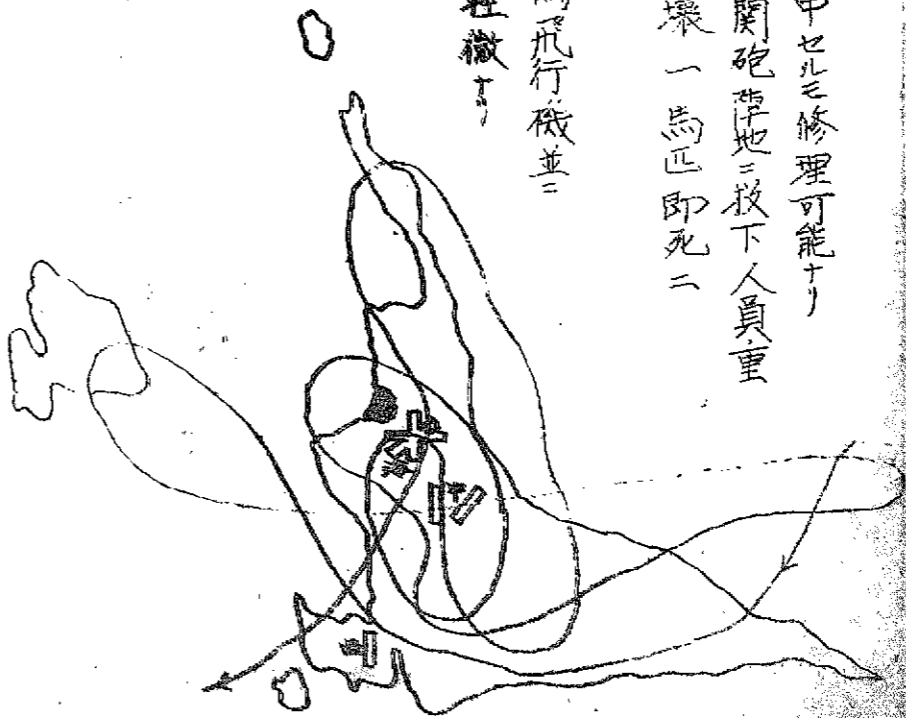 中セルモ修理可能ナリ
関砲陣地ニ投下人員重
壊一馬匹即死二
飛行機並ニ
軽微ナリ